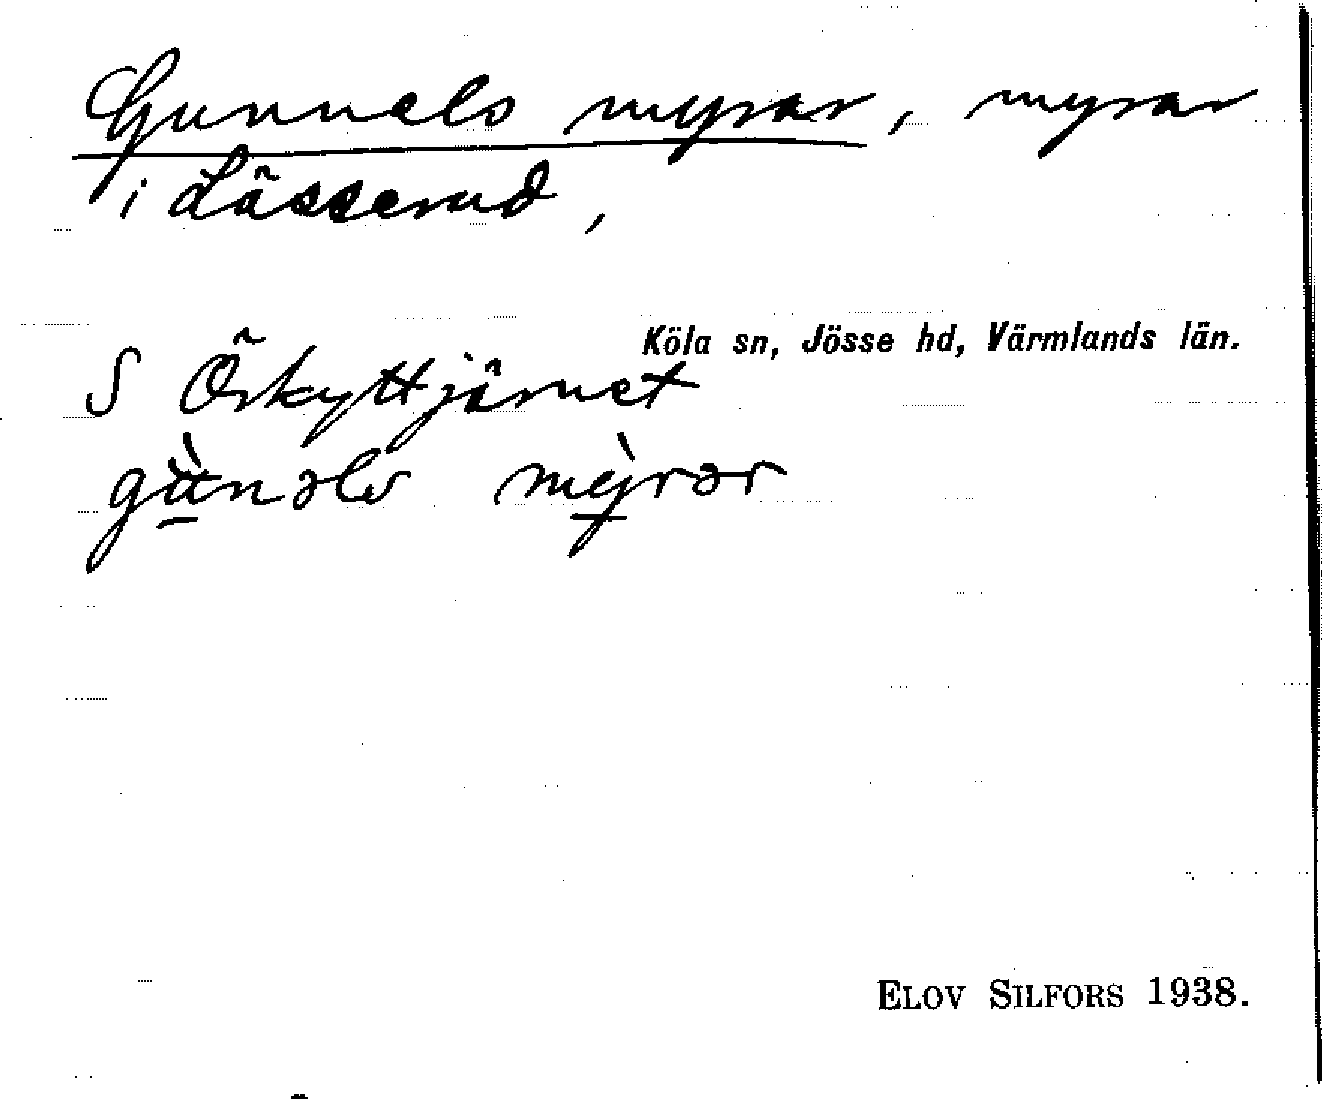 Gunnels myrar, myrar
i Lässerud,
Köla sn, Jösse hd, Värmlands län.
S Örkyttjärnet
gùnəls mỳrər
ELOV SILFORS 1938.